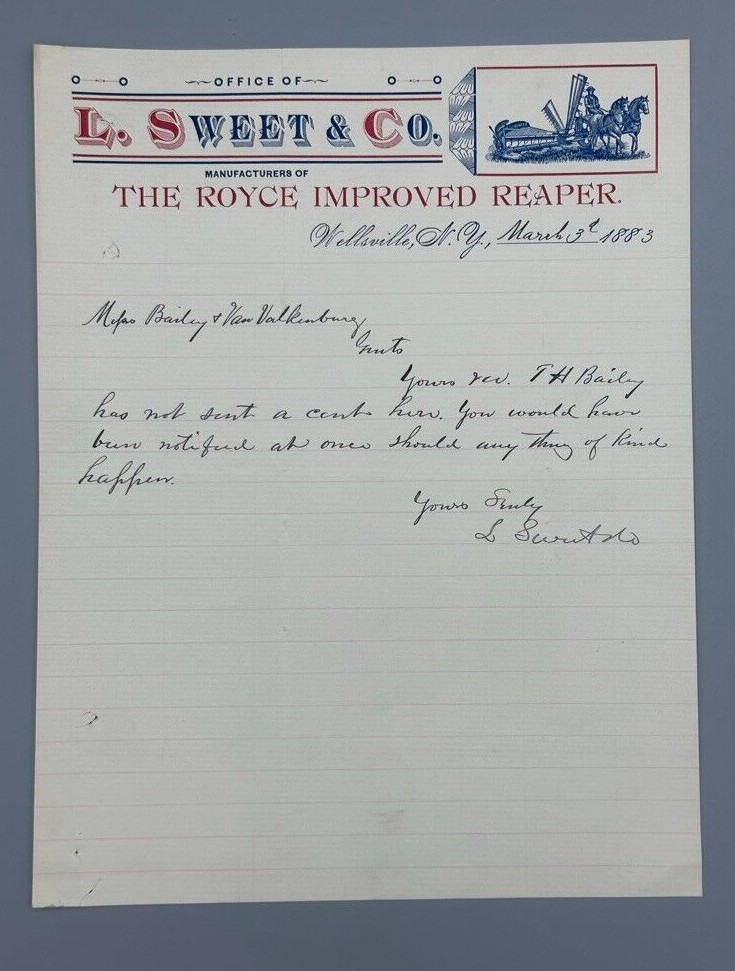 OFFICE OF
L. SWEET & CO.
MANUFACTURERS OF
THE ROYCE IMPROVED REAPER.
Wellsville, N. Y., March 3d 1883
Mess Bailey & Van Valkenburg
Gents
Yours rec. T H Bailey
has not sent a cent here. You would have
been notified at once should any thing of kind
happen.
Yours Truly
L Sweet & Co